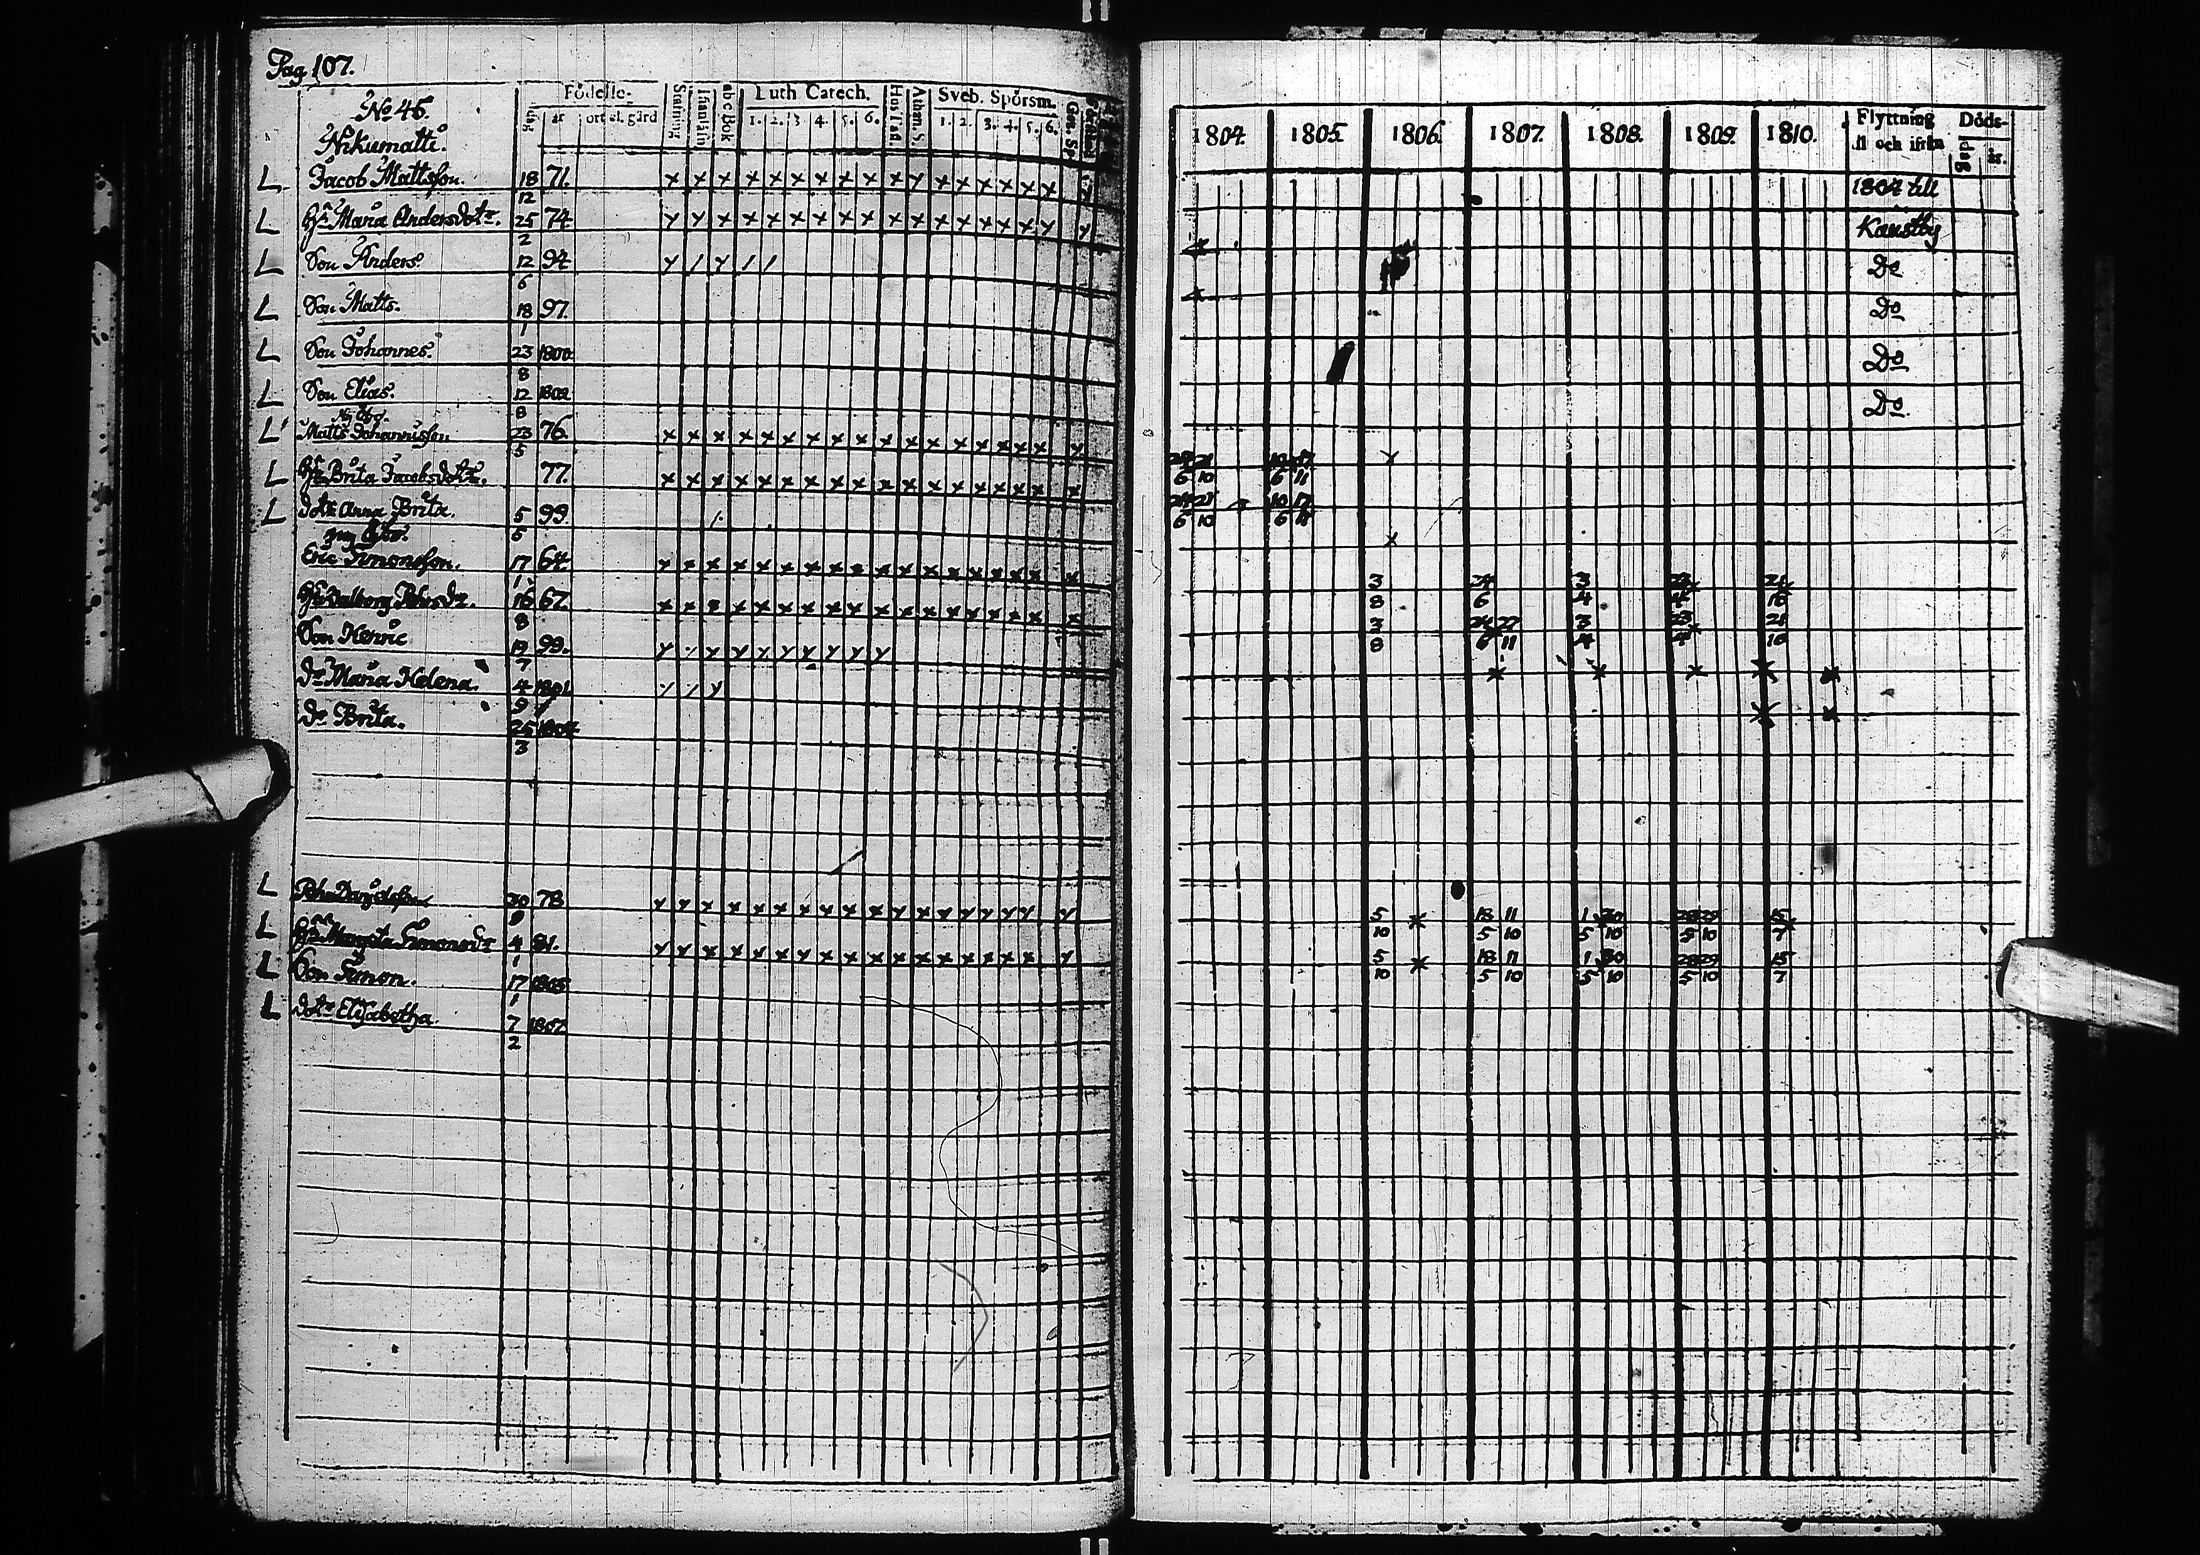 Pag 107.
No 46.
Nikumatti.
Födelse-
dag år ort el. gård
Stafning Innanläsn abcBok
Luth Catech.
1. 2. 3. 4. 5. 6.
Athan. S.
Sveb. Spörsm.
1. 2. 3. 4. 5. 6.
L Jacob Mattsson. 18/12 71. x x x x x x x x x x x x x x x x x
L Hu Maria Andersdotr. 25/2 74. x x x x x x x x x x x x x x x x x x
L Son Anders. 12/6 94
L Son Matts. 18/1 97.
L Son Johannes. 23/8 1800.
L Son Elias. 12/8 1802
L Matts Johannisson 23/5 76. x x x x x x x x x x x x x x x x x x
L Hu Brita Jacobsdotr. 77. x x x x x x x x x x x x x x x x x x
L dotr Anna Brita. 5/5 99.
Eric Simonsson. 17/1 64. x x x x x x x x x x x x x x x x x x
Hu Valborg 16/8 67. x x x x x x x x x x x x x x x x x x
Son Henric 19/7 99.
dr Maria Helena. 4/9 1801.
dr Brita. 25/3 1804
L 78 x x x x x x x x x x x x x x x x x x
L Hu Margeta Simonsdr 4/1 81. x x x x x x x x x x x x x x x x x x
L Son Simon. 17/1 1805
L dotr Elisabetha. 7/2 1807.
1804. 1805. 1806. 1807. 1808. 1809. 1810.
Flyttning
til och ifrån
Döds-
dag år.
1804 till
Kaustby
Do
Do
Do
Do
6 10 6 11
6 10 6
3 24 3
8 6 4
3 24 27 3 23 21
8 6 11 4 4 10
5 x 18 11 1 30 28 29 15
10 5 10 5 10 5 10 7
5 x 18 11 1 30 28 29 15
10 5 10 5 10 5 10 7